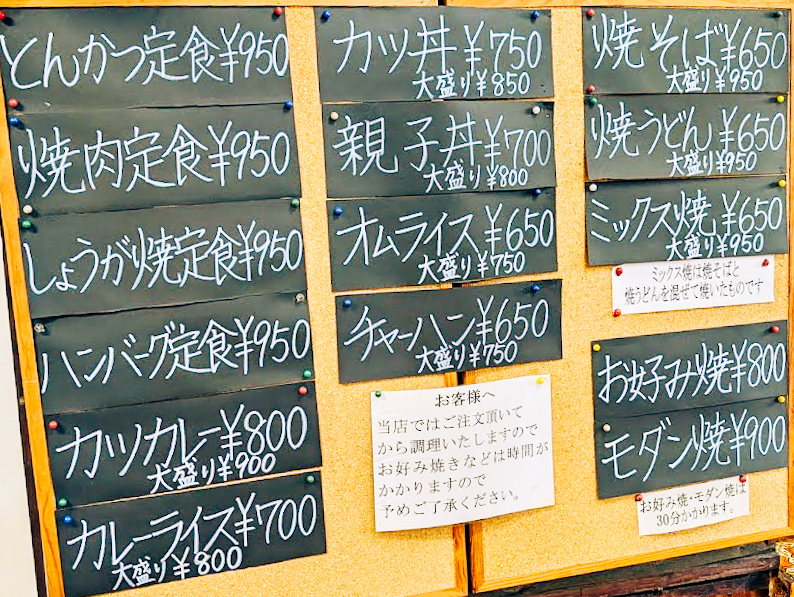 とんかつ定食¥950
焼肉定食¥950
しょうが焼定食¥950
ハンバーグ定食¥950
カツカレー¥800
大盛り¥900
カレーライス¥700
大盛り¥800
カツ丼¥750
大盛り¥850
親子丼¥700
大盛り¥800
オムライス¥650
大盛り¥750
チャーハン¥650
大盛り¥750
お客様へ
当店ではご注文頂いて
から調理いたしますので
お好み焼きなどは時間が
かかりますので
予めご了承ください。
焼そば¥650
大盛り¥950
焼うどん¥650
大盛り¥950
ミックス焼¥650
大盛り¥950
ミックス焼は焼そばと
焼うどんを混ぜて焼いたものです
お好み焼¥800
モダン焼¥900
お好み焼・モダン焼は
30分かかります。